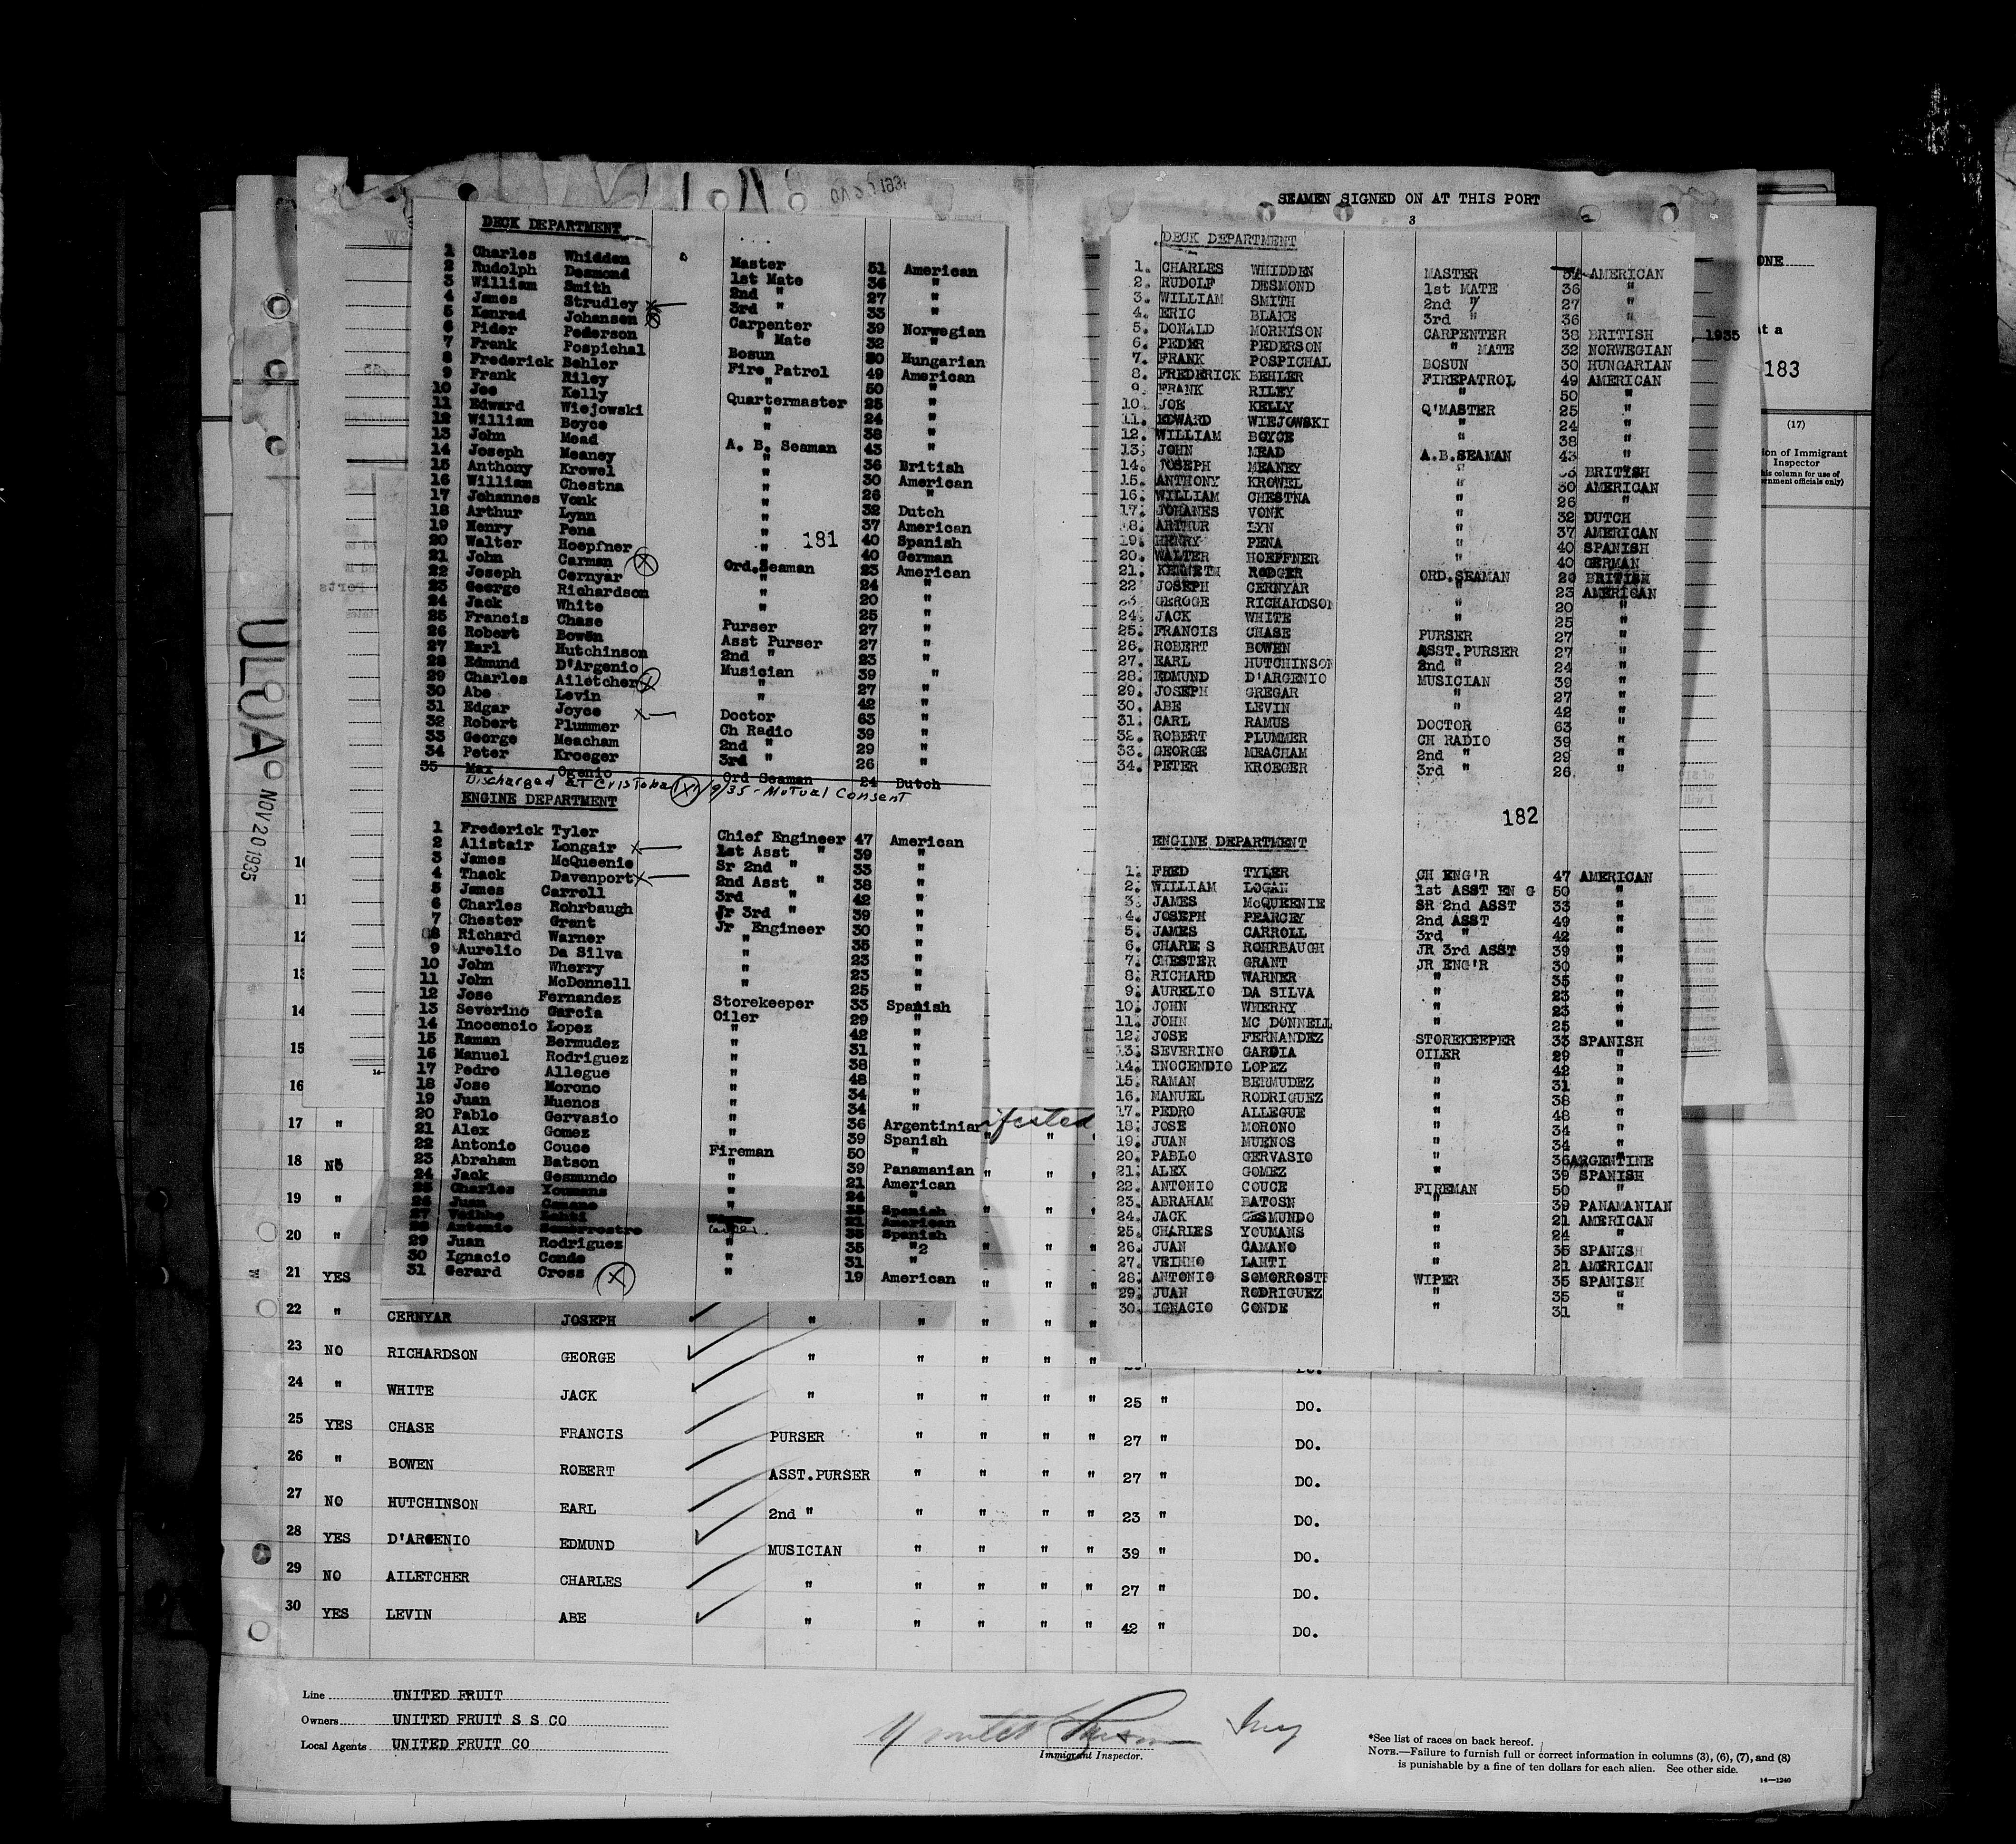 DECK DEPARTMENT
1 Charles Whidden Master 51 American
2 Rudolph Desmond 1st Mate 36 "
3 William Smith 2nd " 27 "
4 James Strudley x— 3rd " 33 "
5 Konrad Johansen Carpenter 39 Norwegian
6 Pider Pederson " Mate 32 "
7 Frank Pospichal Bosun 30 Hungarian
8 Frederick Behler Fire Patrol 49 American
9 Frank Riley " 50 "
10 Joe Kelly Quartermaster 25 "
11 Edward Wiejowski " 24 "
12 William Boyce " 38 "
13 John Mead A. B. Seaman 43 "
14 Joseph Meaney " 36 British
15 Anthony Krowel " 30 American
16 William Chestna " 26 "
17 Johannes Vonk " 32 Dutch
18 Arthur Lynn " 37 American
19 Henry Pena " 40 Spanish
20 Walter Hoepfner " 40 German
181
21 John Carman X Ord.Seaman 23 American
22 Joseph Cernyar " 24 "
23 George Richardson " 20 "
24 Jack White " 25 "
25 Francis Chase Purser 27 "
26 Robert Bowen Asst Purser 27 "
27 Earl Hutchinson 2nd " 23 "
28 Edmund D'Argenio Musician 39 "
29 Charles Ailetcher X " 27 "
30 Abe Levin " 42 "
31 Edgar Joyce x— Doctor 63 "
32 Robert Plummer Ch Radio 39 "
33 George Meacham 2nd " 29 "
34 Peter Kroeger 3rd " 26 "
35 Max Ogenio Ord Seaman 24 Dutch
Discharged at Cristobal X 1/9/35 - Mutual Consent
ENGINE DEPARTMENT
1 Frederick Tyler Chief Engineer 47 American
2 Alistair Longair x— 1st Asst " 39 "
3 James McQueenie Sr 2nd " 33 "
4 Thack Davenport x— 2nd Asst " 38 "
5 James Carroll 3rd " 42 "
6 Charles Rohrbaugh Jr 3rd " 39 "
7 Chester Grant Jr Engineer 30 "
8 Richard Warner " 35 "
9 Aurelio Da Silva " 23 "
10 John Wherry " 23 "
11 John McDonnell " 25 "
12 Jose Fernandez Storekeeper 33 Spanish
13 Severino Garcia Oiler 29 "
14 Inocencio Lopez " 42 "
15 Raman Bermudez " 31 "
16 Manuel Rodriguez " 38 "
17 Pedro Allegue " 48 "
18 Jose Morono " 34 "
19 Juan Muenos " 34 "
20 Pablo Gervasio " 36 Argentinian
21 Alex Gomez " 39 Spanish
22 Antonio Couce Fireman 50 "
23 Abraham Batson " 39 Panamanian
24 Jack Gesmundo " 21 American
25 Charles Youmans " 24 "
26 Juan Camano " 35 Spanish
27 Veihho Lahti 21 American
28 Antonio Somorrostro 35 Spanish
29 Juan Rodriguez " 35 "2
30 Ignacio Conde " 31 "
31 Gerard Cross X " 19 American
SEAMEN SIGNED ON AT THIS PORT
3
DECK DEPARTMENT
1. CHARLES WHIDDEN MASTER 51 AMERICAN
2. RUDOLF DESMOND 1st MATE 36 "
3. WILLIAM SMITH 2nd " 27 "
4. ERIC BLAKE 3rd " 36 "
5. DONALD MORRISON CARPENTER 38 BRITISH
6. PEDER PEDERSON " MATE 32 NORWEGIAN
7. FRANK POSPICHAL BOSUN 30 HUNGARIAN
8. FREDERICK BEHLER FIREPATROL 49 AMERICAN
9. FRANK RILEY " 50 "
10. JOE KELLY Q'MASTER 25 "
11. EDWARD WIEJOWSKI " 24 "
12. WILLIAM BOYCE " 38 "
13. JOHN MEAD A.B.SEAMAN 43 "
14. JOSEPH MEANEY " 36 BRITISH
15. ANTHONY KROWEL " 30 AMERICAN
16. WILLIAM CHESTNA " 26 "
17. JOHANES VONK " 32 DUTCH
18. ARTHUR LYN " 37 AMERICAN
19. HENRY PENA " 40 SPANISH
20. WALTER HOEPFNER " 40 GERMAN
21. KENNETH RODGER ORD.SEAMAN 20 BRITISH
22 JOSEPH CERNYAR " 23 AMERICAN
23. GEROGE RICHARDSON " 20 "
24. JACK WHITE " 25 "
25. FRANCIS CHASE PURSER 27 "
26. ROBERT BOWEN ASST.PURSER 27 "
27. EARL HUTCHINSON 2nd " 24 "
28. EDMUND D'ARGENIO MUSICIAN 39 "
29. JOSEPH GREGAR " 27 "
30. ABE LEVIN " 42 "
31. CARL RAMUS DOCTOR 63 "
32. ROBERT PLUMMER CH RADIO 39 "
33. GEORGE MEACHAM 2nd " 29 "
34. PETER KROEGER 3rd " 26. "
182
ENGINE DEPARTMENT
1. FRED TYLER CH ENG'R 47 AMERICAN
2. WILLIAM LOGAN 1st ASST EN G 50 "
3. JAMES McQUEENIE SR 2nd ASST 33 "
4. JOSEPH PEARCEY 2nd ASST 49 "
5. JAMES CARROLL 3rd " 42 "
6. CHARE S ROHRBAUGH JR 3rd ASST 39 "
7. CHESTER GRANT JR ENG'R 30 "
8. RICHARD WARNER " 35 "
9. AURELIO DA SILVA " 23 "
10. JOHN WHERRY " 23 "
11. JOHN MC DONNELL " 25 "
12. JOSE FERNANDEZ STOREKEEPER 33 SPANISH
13. SEVERINO GARDIA OILER 29 "
14. INOCENDIO LOPEZ " 42 "
15. RAMAN BERMUDEZ " 31 "
16. MANUEL RODRIGUEZ " 38 "
17. PEDRO ALLEGUE " 48 "
18. JOSE MORONO " 34 "
19. JUAN MUENOS " 34 "
20. PABLO GERVASIO " 36 ARGENTINE
21. ALEX GOMEZ " 39 SPANISH
22. ANTONIO COUCE FIREMAN 50 "
23. ABRAHAM BATOSN " 39 PANAMANIAN
24. JACK GESMUNDO " 21 AMERICAN
25. CHARLES YOUMANS " 24 "
26. JUAN CAMANO " 35 SPANISH
27. VEIHHO LAHTI " 21 AMERICAN
28. ANTONIO SOMORROSTR WIPER 35 SPANISH
29. JUAN RODRIGUEZ " 35 "
30. IGNACIO CONDE " 31 "
ONE
at a
, 1935
183
(17)
ion of Immigrant
Inspector
his column for use of
ernment officials only)
ULUA
NOV 20 1935
10
11
12
13
14
15
16
17 " ifested " " "
18 NO " " "
19 " " " "
20 " " " "
21 YES " " "
22 " CERNYAR JOSEPH " " " " "
23 NO RICHARDSON GEORGE " " " " " DO.
24 " WHITE JACK " " " " " 25 " DO.
25 YES CHASE FRANCIS PURSER " " " " 27 " DO.
26 " BOWEN ROBERT ASST.PURSER " " " " 27 " DO.
27 NO HUTCHINSON EARL 2nd " " " " " 23 " DO.
28 YES D'ARGENIO EDMUND MUSICIAN " " " " 39 " DO.
29 NO AILETCHER CHARLES " " " " " 27 " DO.
30 YES LEVIN ABE " " " " " 42 " DO.
Line UNITED FRUIT
Owners UNITED FRUIT S S CO
Local Agents UNITED FRUIT CO
Immigrant Inspector.
*See list of races on back hereof.
NOTE.—Failure to furnish full or correct information in columns (3), (6), (7), and (8)
is punishable by a fine of ten dollars for each alien. See other side.
14—1240